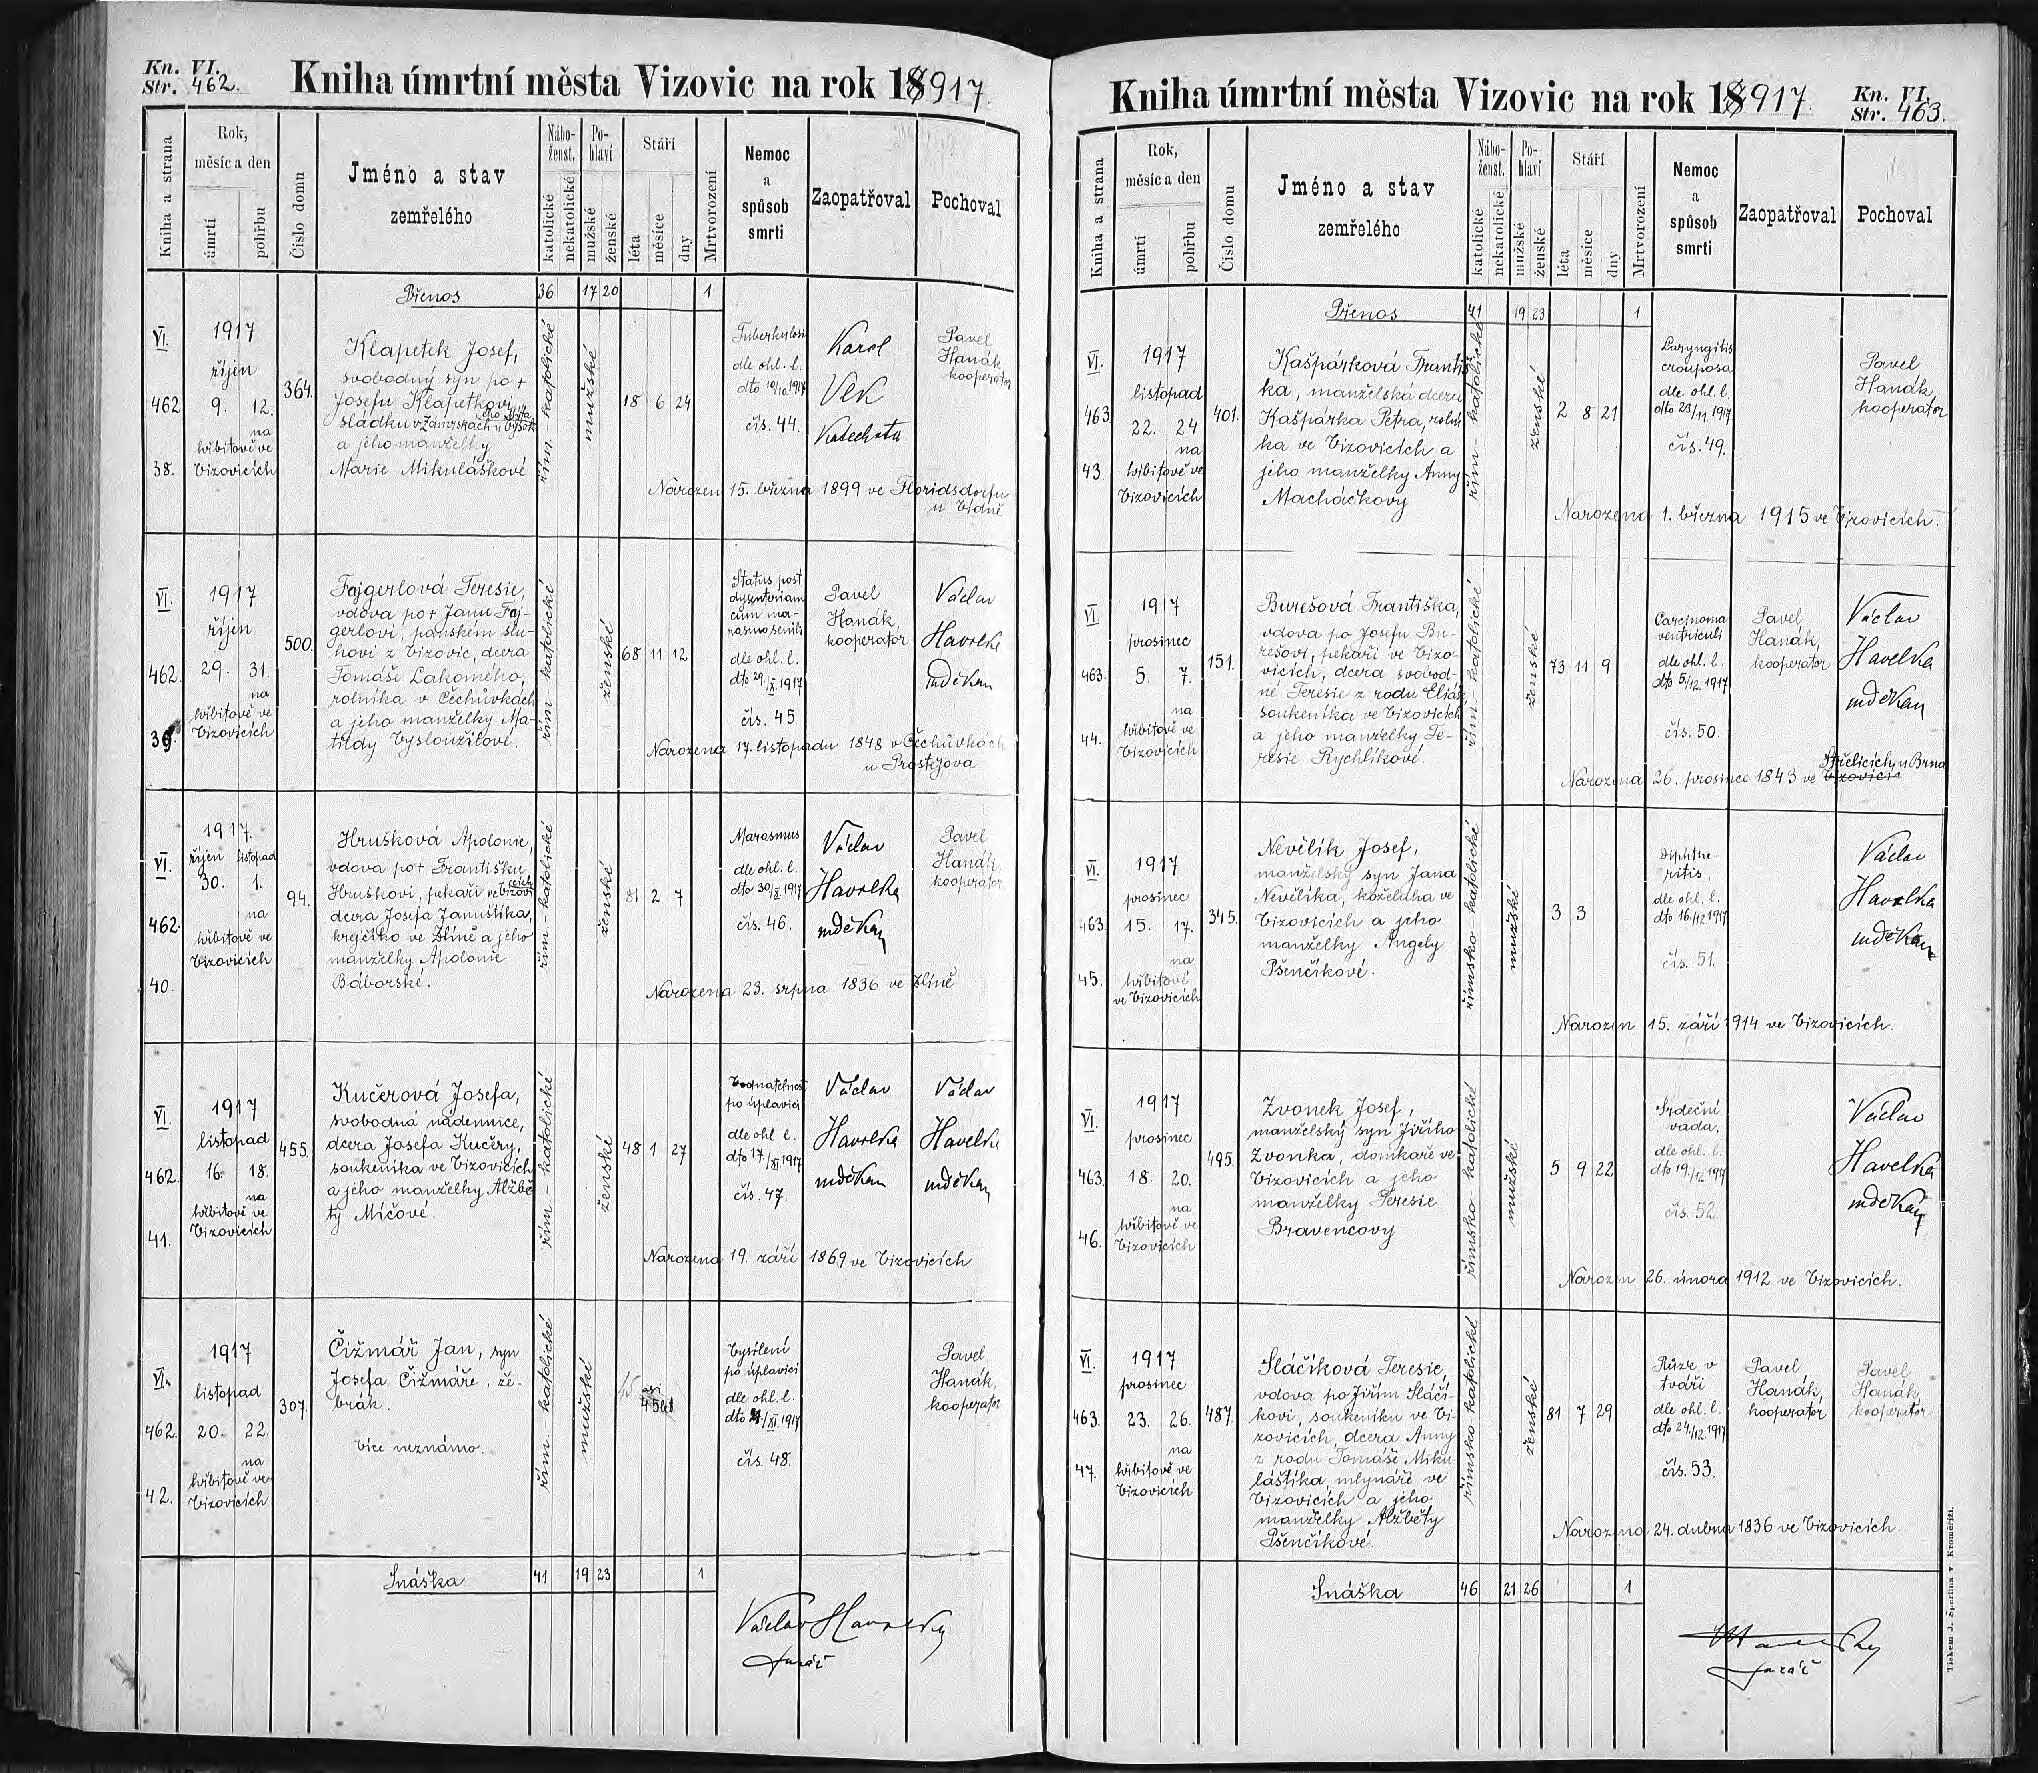 Kn. VI.
Str. 462.
Kniha úmrtní města Vizovic na rok 18917.
Kniha a strana
Rok,
měsíc a den
úmrtí
pohřbu
Číslo domu
Jméno a stav
zemřelého
Nábo-
ženst.
katolické
nekatolické
Po-
hlaví
mužské
ženské
Stáří
léta
měsíce
dny
Mrtvorození
Nemoc
a
spůsob
smrti
Zaopatřoval
Pochoval
Přenos 36 17 20 1
VI.
462
38.
1917
říjen
9. 12.
na
hřbitově ve
Vizovicích
364.
Klapetek Josef,
svobodný syn po †
Josefu Klapetkovi,
sládku v Zámrskách u
a jeho manželky
Marie Mikuláškové
řím - katolické
mužské
18 6 24
Tuberkulosi
dle ohl. l.
dto 10/10 1917
čís. 44.
Karel
Vek
Katecheta
Pavel
Hanák
kooperator
Narozen 15. března 1899 ve Floridsdorfu
u Vídně
VI.
462.
39.
1917
říjen
29. 31.
na
hřbitově ve
Vizovicích
500.
Fajgerlová Teresie,
vdova po † Janu Faj-
gerlovi, panském slu-
hovi z Vizovic, dcera
Tomáše Lakomého,
rolníka v Čechůvkách
a jeho manželky Ma-
tildy Vysloužilové.
řím - katolické
ženské
68 11 12
Status post
dysenteriam
cum ma-
rasmo senili
dle ohl. l.
dto 29/X. 1917
čís. 45
Pavel
Hanák,
kooperator
Václav
Havelka
inděkan
Narozena 17. listopadu 1848 v Čechůvkách
u Prostějova
VI.
462.
40.
1917.
říjen listopad
30. 1.
na
hřbitově ve
Vizovicích
94.
Hrušková Apolonie,
vdova po † Františku
Hruškovi, pekaři ve Vizovicích
dcera Josefa Januštíka,
krejčího ve Zlíně a jeho
manželky Apolonie
Báborské.
řím - katolické
ženské
81 2 7
Marasmus
dle ohl. l.
dto 30/X. 1917
čís. 46.
Václav
Havelka
inděkan
Pavel
Hanák
kooperator
Narozena 23. srpna 1836 ve Zlíně
VI.
462.
41.
1917
listopad
16. 18.
na
hřbitově ve
Vizovicích
455.
Kučerová Josefa,
svobodná nádennice,
dcera Josefa Kučery,
soukeníka ve Vizovicích
a jeho manželky Alžbě
ty Míčové.
řím - katolické
ženské
48 1 27
Vodnatelnost
po úplavici
dle ohl. l.
dto 17/XI. 1917
čís. 47.
Václav
Havelka
inděkan
Václav
Havelka
inděkan
Narozena 19. září 1869 ve Vizovicích
VI.
462.
42.
1917
listopad
20. 22.
na
hřbitově ve
Vizovicích
307.
Čižmář Jan, syn
Josefa Čižmáře, že-
brák.
Více neznámo.
řím. katolické
mužské
asi
45 let
Vysílení
po úplavici
dle ohl. l.
dto 21/XI 1917
čís. 48.
Pavel
Hanák,
kooperator
Snáška 41 19 23 1
Václav Havelka
farář
Kniha úmrtní města Vizovic na rok 18917.
Kn. VI.
Str. 463.
Kniha a strana
Rok,
měsíc a den
úmrtí
pohřbu
Číslo domu
Jméno a stav
zemřelého
Nábo-
ženst.
katolické
nekatolické
Po-
hlaví
mužské
ženské
Stáří
léta
měsíce
dny
Mrtvorození
Nemoc
a
spůsob
smrti
Zaopatřoval
Pochoval
Přenos 41 19 23 1
VI.
463
43.
1917
listopad
22. 24
na
hřbitově ve
Vizovicích
401.
Kašpárková Františ
ka, manželská dcera
Kašpárka Petra, rolní
ka ve Vizovicích a
jeho manželky Anny
Macháčkovy
řím - katolické
ženské
2 8 21
Laryngitis
crouposa
dle ohl. l.
dto 23/11. 1917
čís. 49.
Pavel
Hanák,
kooperator
Narozena 1. března 1915 ve Vizovicích.
VI
463.
44.
1917
prosinec
5. 7.
na
hřbitově ve
Vizovicích
151.
Burešová Františka,
vdova po Josefu Bu-
rešovi, pekaři ve Vizo-
vicích, dcera svobod-
né Teresie z rodu Eliáš
soukeníka ve Vizovicích
a jeho manželky Te-
resie Rychlíkové.
řím - katolické
ženské
73 11 9
Carcinoma
ventriculi
dle ohl. l.
dto 5/12. 1917
čís. 50.
Pavel
Hanák,
kooperator
Václav
Havelka
inděkan
Střelicích u Brna
Narozena 26. prosince 1843 ve Vizovicích
VI.
463.
45.
1917
prosinec
15. 17.
na
hřbitově
ve Vizovicích
345.
Nevělík Josef,
manželský syn Jana
Nevělíka, koželuha ve
Vizovicích a jeho
manželky Angely
Pšenčíkové.
římsko - katolické
mužské
3 3
Diphthe-
ritis,
dle ohl. l.
dto 16/12 1917
čís. 51.
Václav
Havelka
inděkan
Narozen 15. září 1914 ve Vizovicích.
VI.
463.
46.
1917
prosinec
18. 20.
na
hřbitově ve
Vizovicích
495.
Zvonek Josef,
manželský syn Jiřího
Zvonka, domkaře ve
Vizovicích a jeho
manželky Teresie
Bravencovy
římsko katolické
mužské
5 9 22
Srdeční
vada,
dle ohl. l.
dto 19/12 1917
čís. 52.
Václav
Havelka
inděkan
Narozen 26. února 1912 ve Vizovicích.
VI.
463.
47.
1917
prosinec
23. 26.
na
hřbitově ve
Vizovicích
487.
Sláčíková Teresie,
vdova po Jiřím Sláčí-
kovi, soukeníku ve Vi-
zovicích, dcera Anny
z rodu Tomáše Miku
láštíka, mlynáře ve
Vizovicích a jeho
manželky Alžběty
Pšenčíkové.
římsko katolické
ženské
81 7 29
Růže v
tváři
dle ohl. l.
dto 24/12. 1917
čís. 53.
Pavel
Hanák,
kooperator
Pavel
Hanák,
kooperator
Narozena 24. dubna 1836 ve Vizovicích
Snáška 46 21 26 1
Havelka
farář
Tiskem J. Šperlína v Kroměříži.